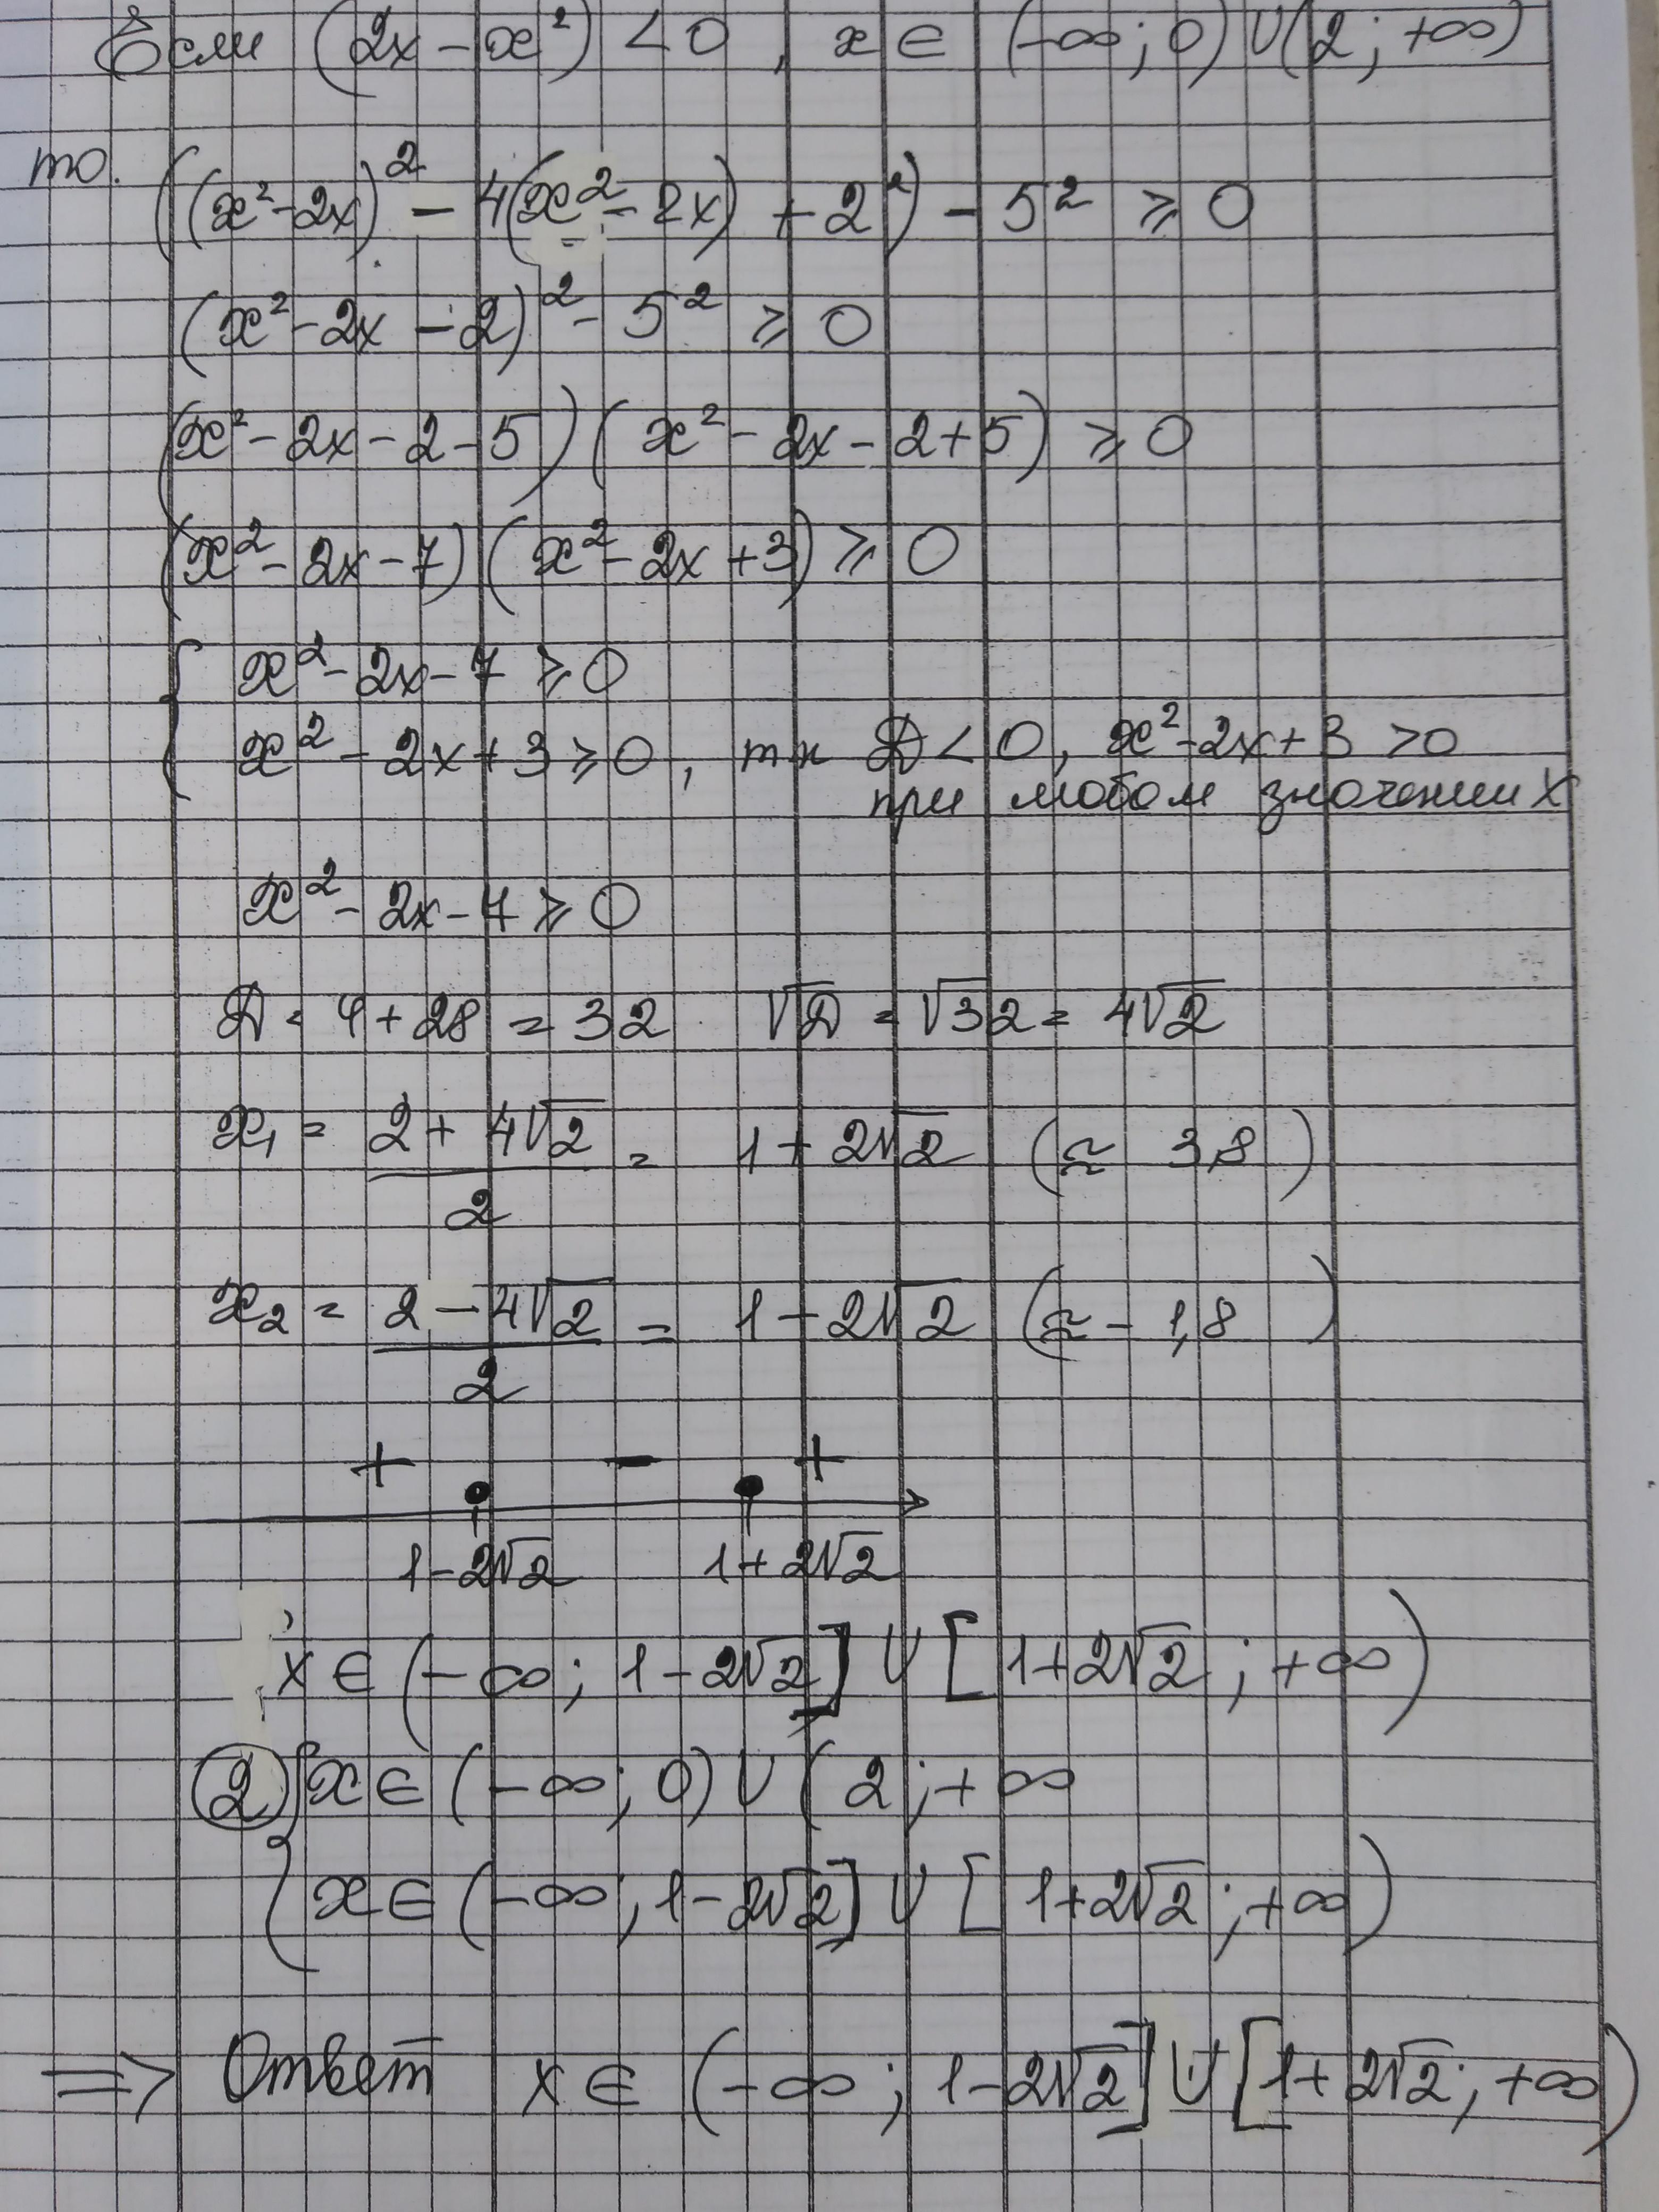 Если (2x - x²) < 0, x ∈ (-∞; 0) ∪ (2; +∞)
то. ((x² - 2x)² - 4(x² - 2x) + 2²) - 5² ⩾ 0
(x² - 2x - 2)² - 5² ⩾ 0
(x² - 2x - 2 - 5)(x² - 2x - 2 + 5) ⩾ 0
(x² - 2x - 7)(x² - 2x + 3) ⩾ 0
{ x² - 2x - 7 ⩾ 0
x² - 2x + 3 ⩾ 0, тк D < 0, x² - 2x + 3 > 0
при любом значении x
x² - 2x - 7 ⩾ 0
D = 4 + 28 = 32 √D = √32 = 4√2
x₁ = (2 + 4√2)/2 = 1 + 2√2 (≈ 3,8)
x₂ = (2 - 4√2)/2 = 1 - 2√2 (≈ - 1,8)
+ - +
1 - 2√2 1 + 2√2
x ∈ (-∞; 1 - 2√2] ∪ [1 + 2√2; +∞)
② { x ∈ (-∞; 0) ∪ (2; +∞
x ∈ (-∞; 1 - 2√2] ∪ [1 + 2√2; +∞)
=> Ответ x ∈ (-∞; 1 - 2√2] ∪ [1 + 2√2; +∞)